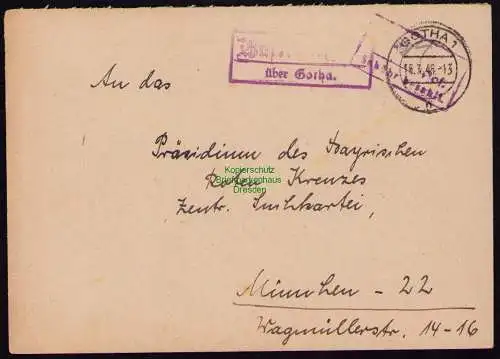 GOTHA 1
18.3.46-13
über Gotha.
Gebühr bezahlt.
An das
Präsidium des Bayrischen
Roten Kreuzes
Zentr. Suchkartei,
München - 22
Wagmüllerstr. 14-16
Kopierschutz
Briefmarkenhaus
Dresden